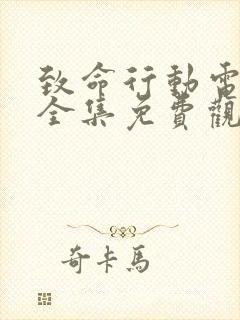 致命行動電
全集免費觀
奇卡馬